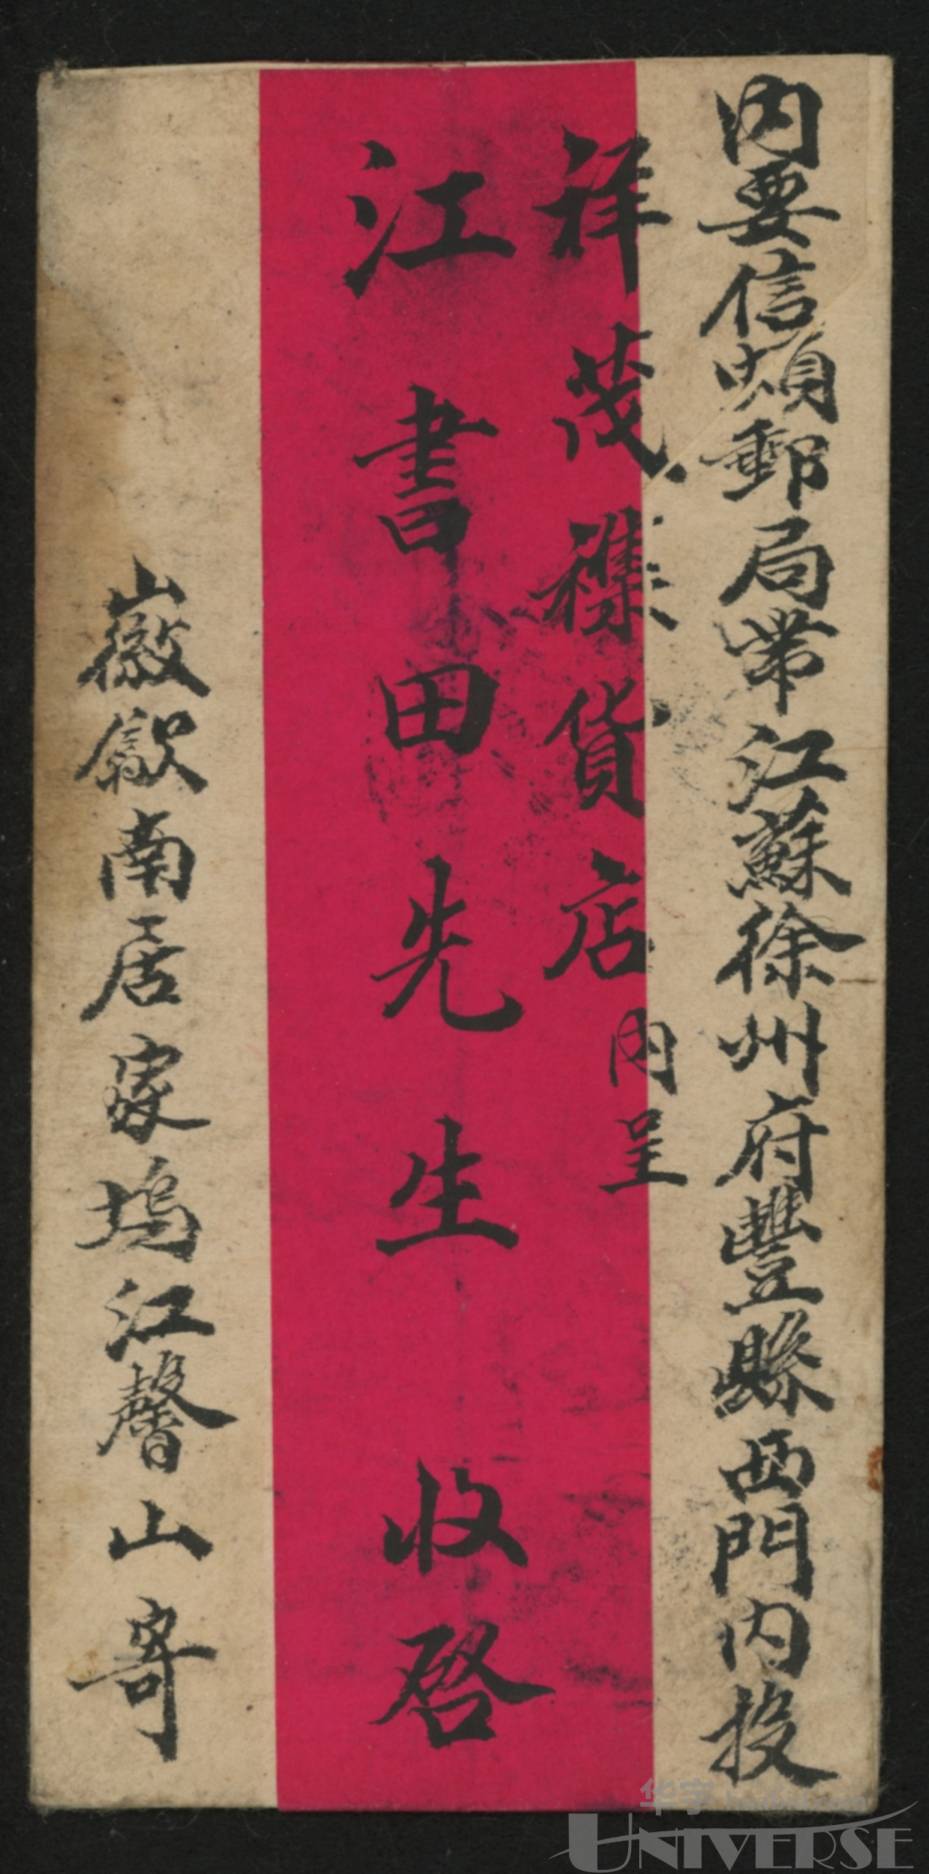 內要信煩郵局帶江蘇徐州府豐縣西門內投
祥茂襍貨店內呈
江書田先生 收啓
山徽歙南居家塢江馨山寄
华宇
UNIVERSE